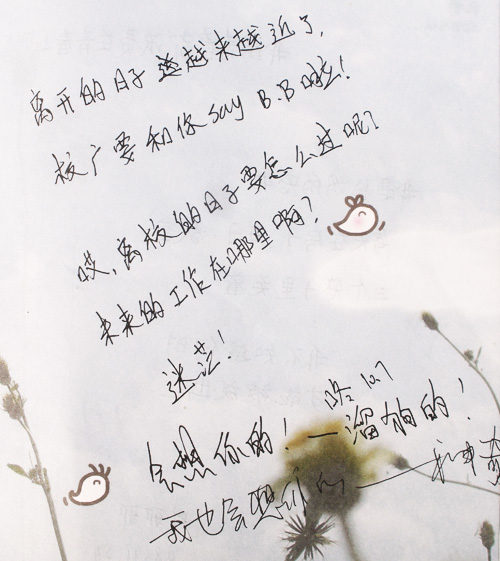 离开的日子越来越近了,
校广要和你say B.B啦!
哎,离校的日子要怎么过呢?
未来的工作在哪里啊?
迷茫!
会想你的!一溜的!
我也会想你们